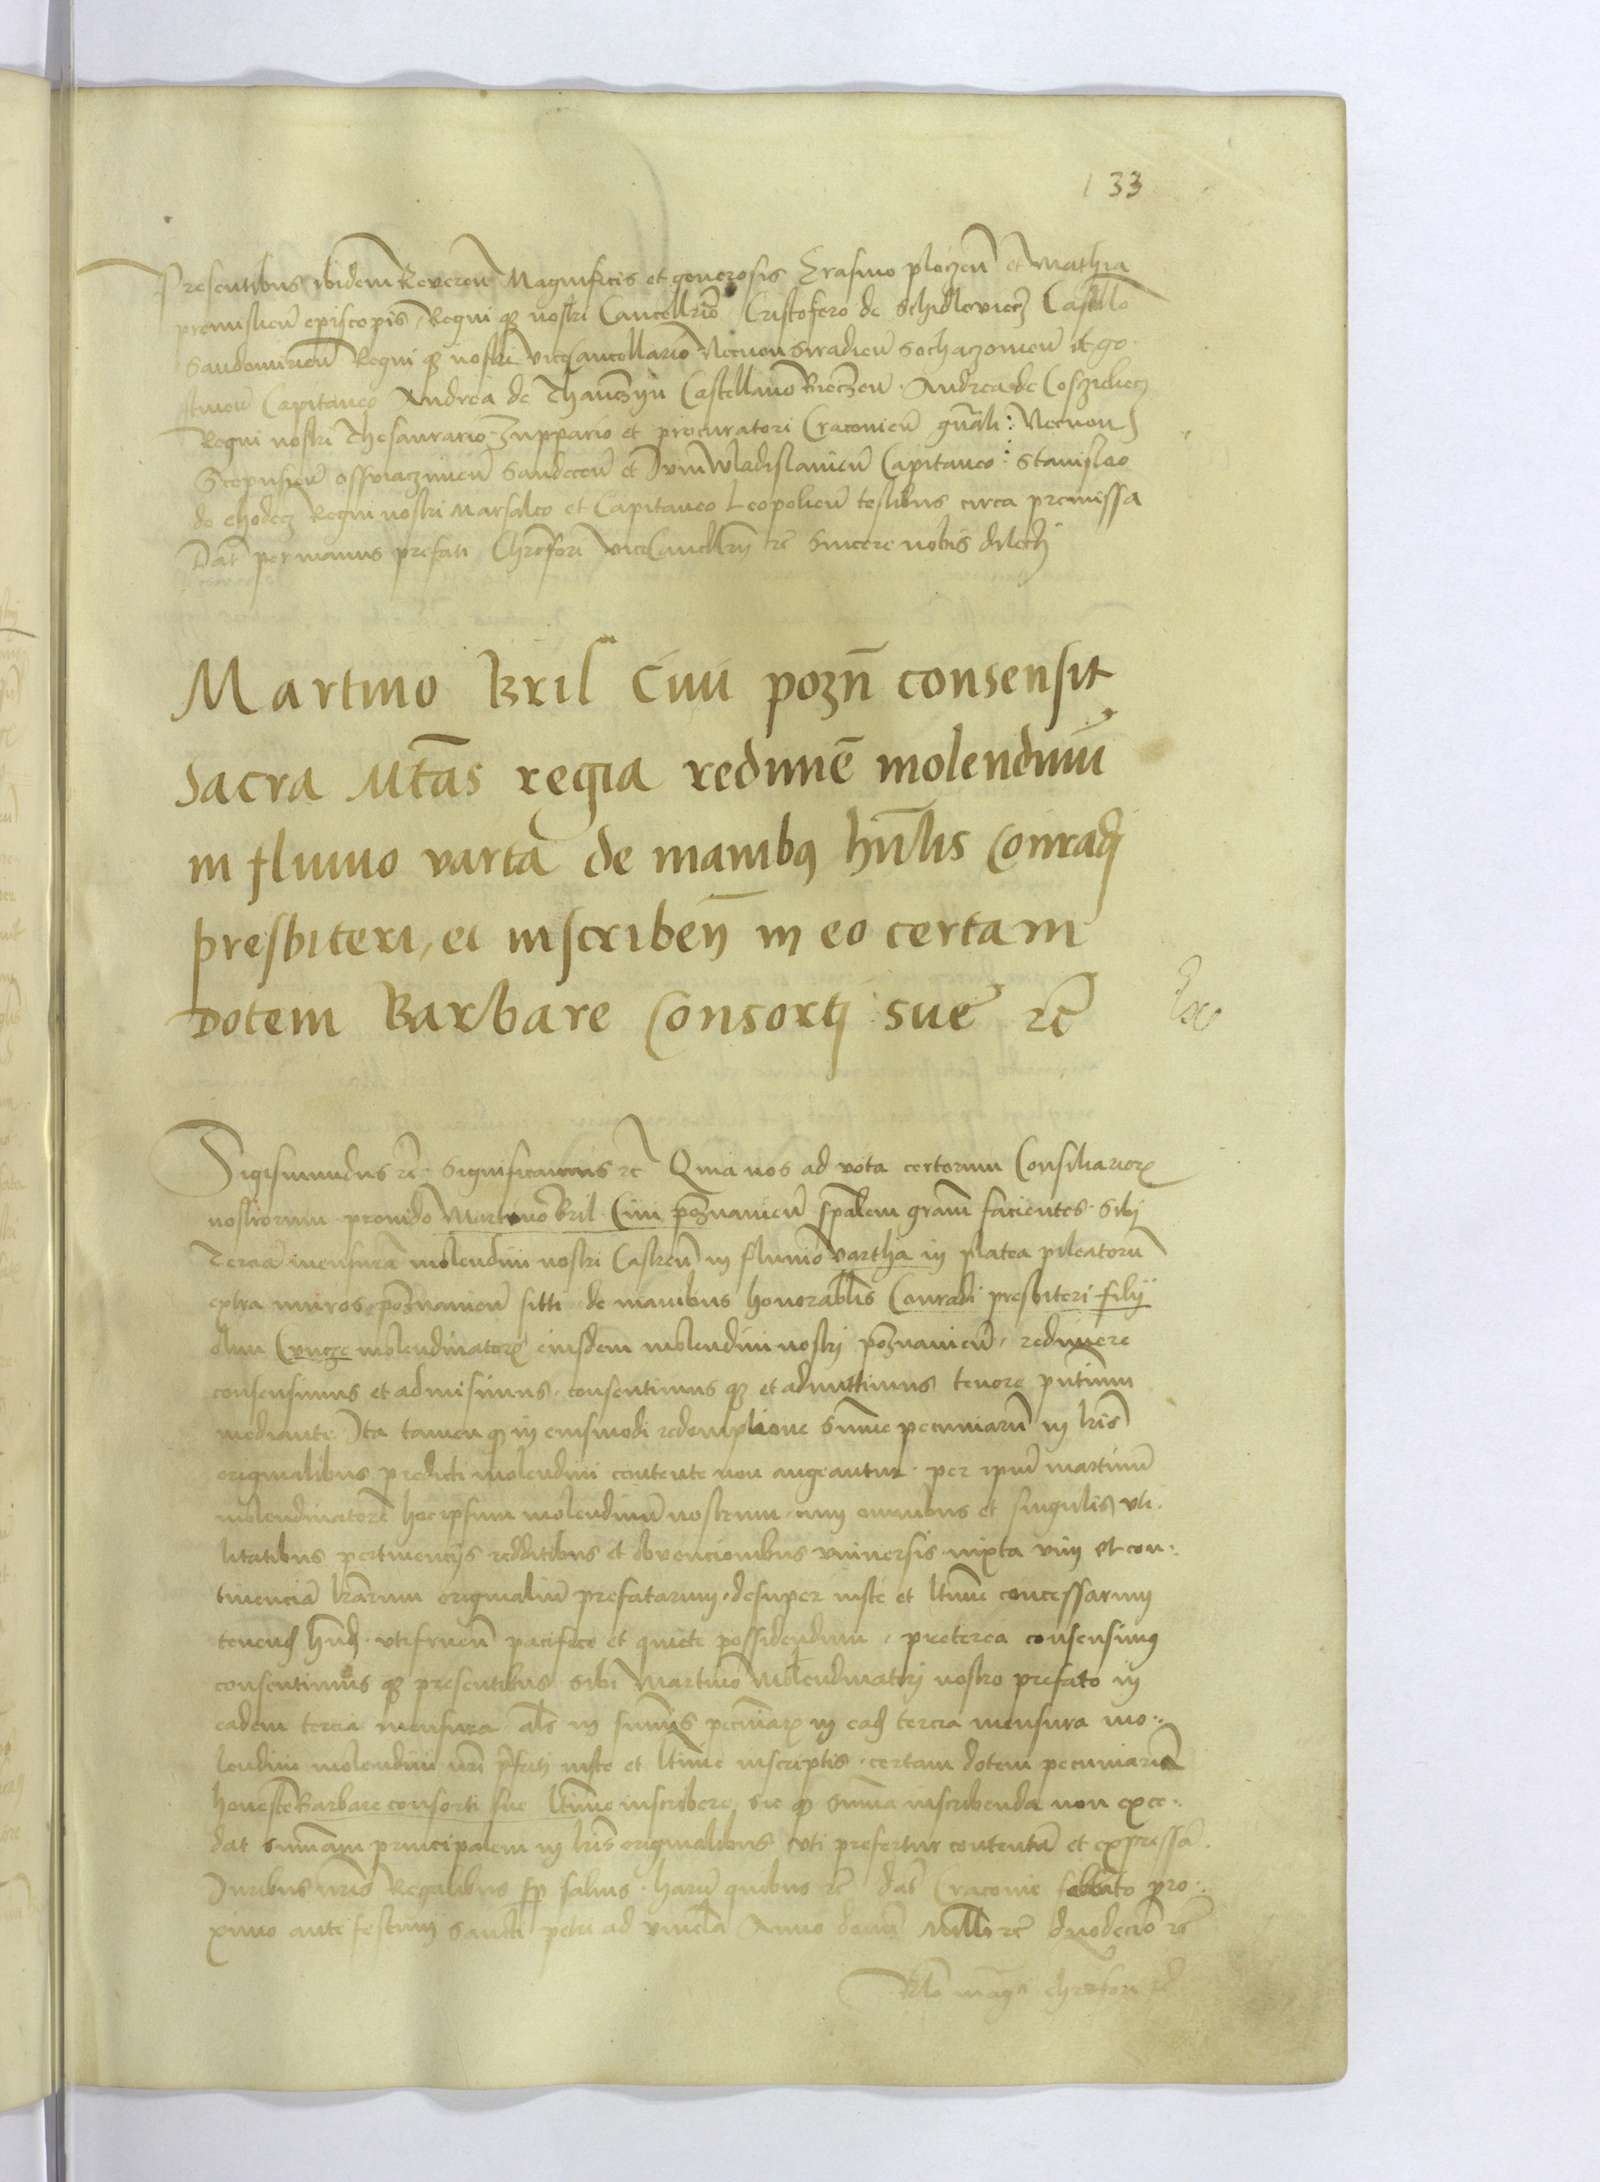 133
Presentibus ibidem Reveren Magnificis et generosis Erasmo ploczen et Mathia
premislien episcopis, Regni q nostri Cancellrio Cristofero de Schidloviecz Castello
Sandomirien Regni q nostri viceCancellario Necnon Siradien Sochaczovien et go
stinen Capitaneo Andrea de Thanczyn Castellano Bieczen Andrea de Cosczieliecz
Regni nostri Thesaurario Zuppario et procuratori Cracovien gnali: Necnon
Scepusien osswiaczimen Sandecen et Iunwladislavien Capitaneo: Stanislao
de chodecz Regni nostri Marsalco et Capitaneo Leopolien testibus circa premissa
Dat per manus prefati Chrofori viceCancllrij rc sincere nobis dilecti
Martino Bril Civi pozn consensit
Sacra Mtas regia redimē molendinū
in fluvio varta de manibq hnlis Conradj
presbiteri, et inscribeñ in eo certam
Dotem Barbare Consortj sue rc
Sigismundus rc Significamus rc Quia nos ad vota certorum Consiliariorz
nostrorum provido Martino Bril Civi poznanien spalem gram facientes sibj
Terciā mensurā molendini nostri Castren in fluvio vartha in platea pileatorū
extra muros poznanien sitti de manibus honorablis Conradi presbiteri filij
olim Cuncze molendinatorz eiusdem molendini nostrj poznanien, redimere
consensimus et admisimus, consentimus q et admittimus tenore pntium
mediante Ita tamen q in eiusmodi redemptione summe pecuniarū in lris
originalibus predicti molendini contente non augeantur per ipm martinū
molendinatorē hoc ipsum molendinū nostrum cum omnibus et singulis uti
litatibus pertinencijs redditibus et obvencionibus universis iuxta vim et con
tinenciā lrarum originaliū prefatarum desuper iuste et ltime concessarum
tenend hnd utifruen pacifice et quiete possidendum, preterea consensimus
consentimus q presentibus sibi Martino Molendinatorj nostro prefato in
eadem tercia mensura als in summis pecuniarz in ead tercia mensura mo
lendini molendini nri prefati iuste et ltime inscriptis certam dotem pecuniariā
honeste Barbare consorti sue ltime inscribere, sic q summa inscribenda non exce
dat summam principalem in lris originalibus uti prefertur contentā et expressā
Iuribus nris Regalibus sp salvis harū quibus rc dat Cracovie sabbato pro
ximo ante festum sancti petri ad vincla Anno domi Millo rc duodecio rc
Rlo mag chrofori